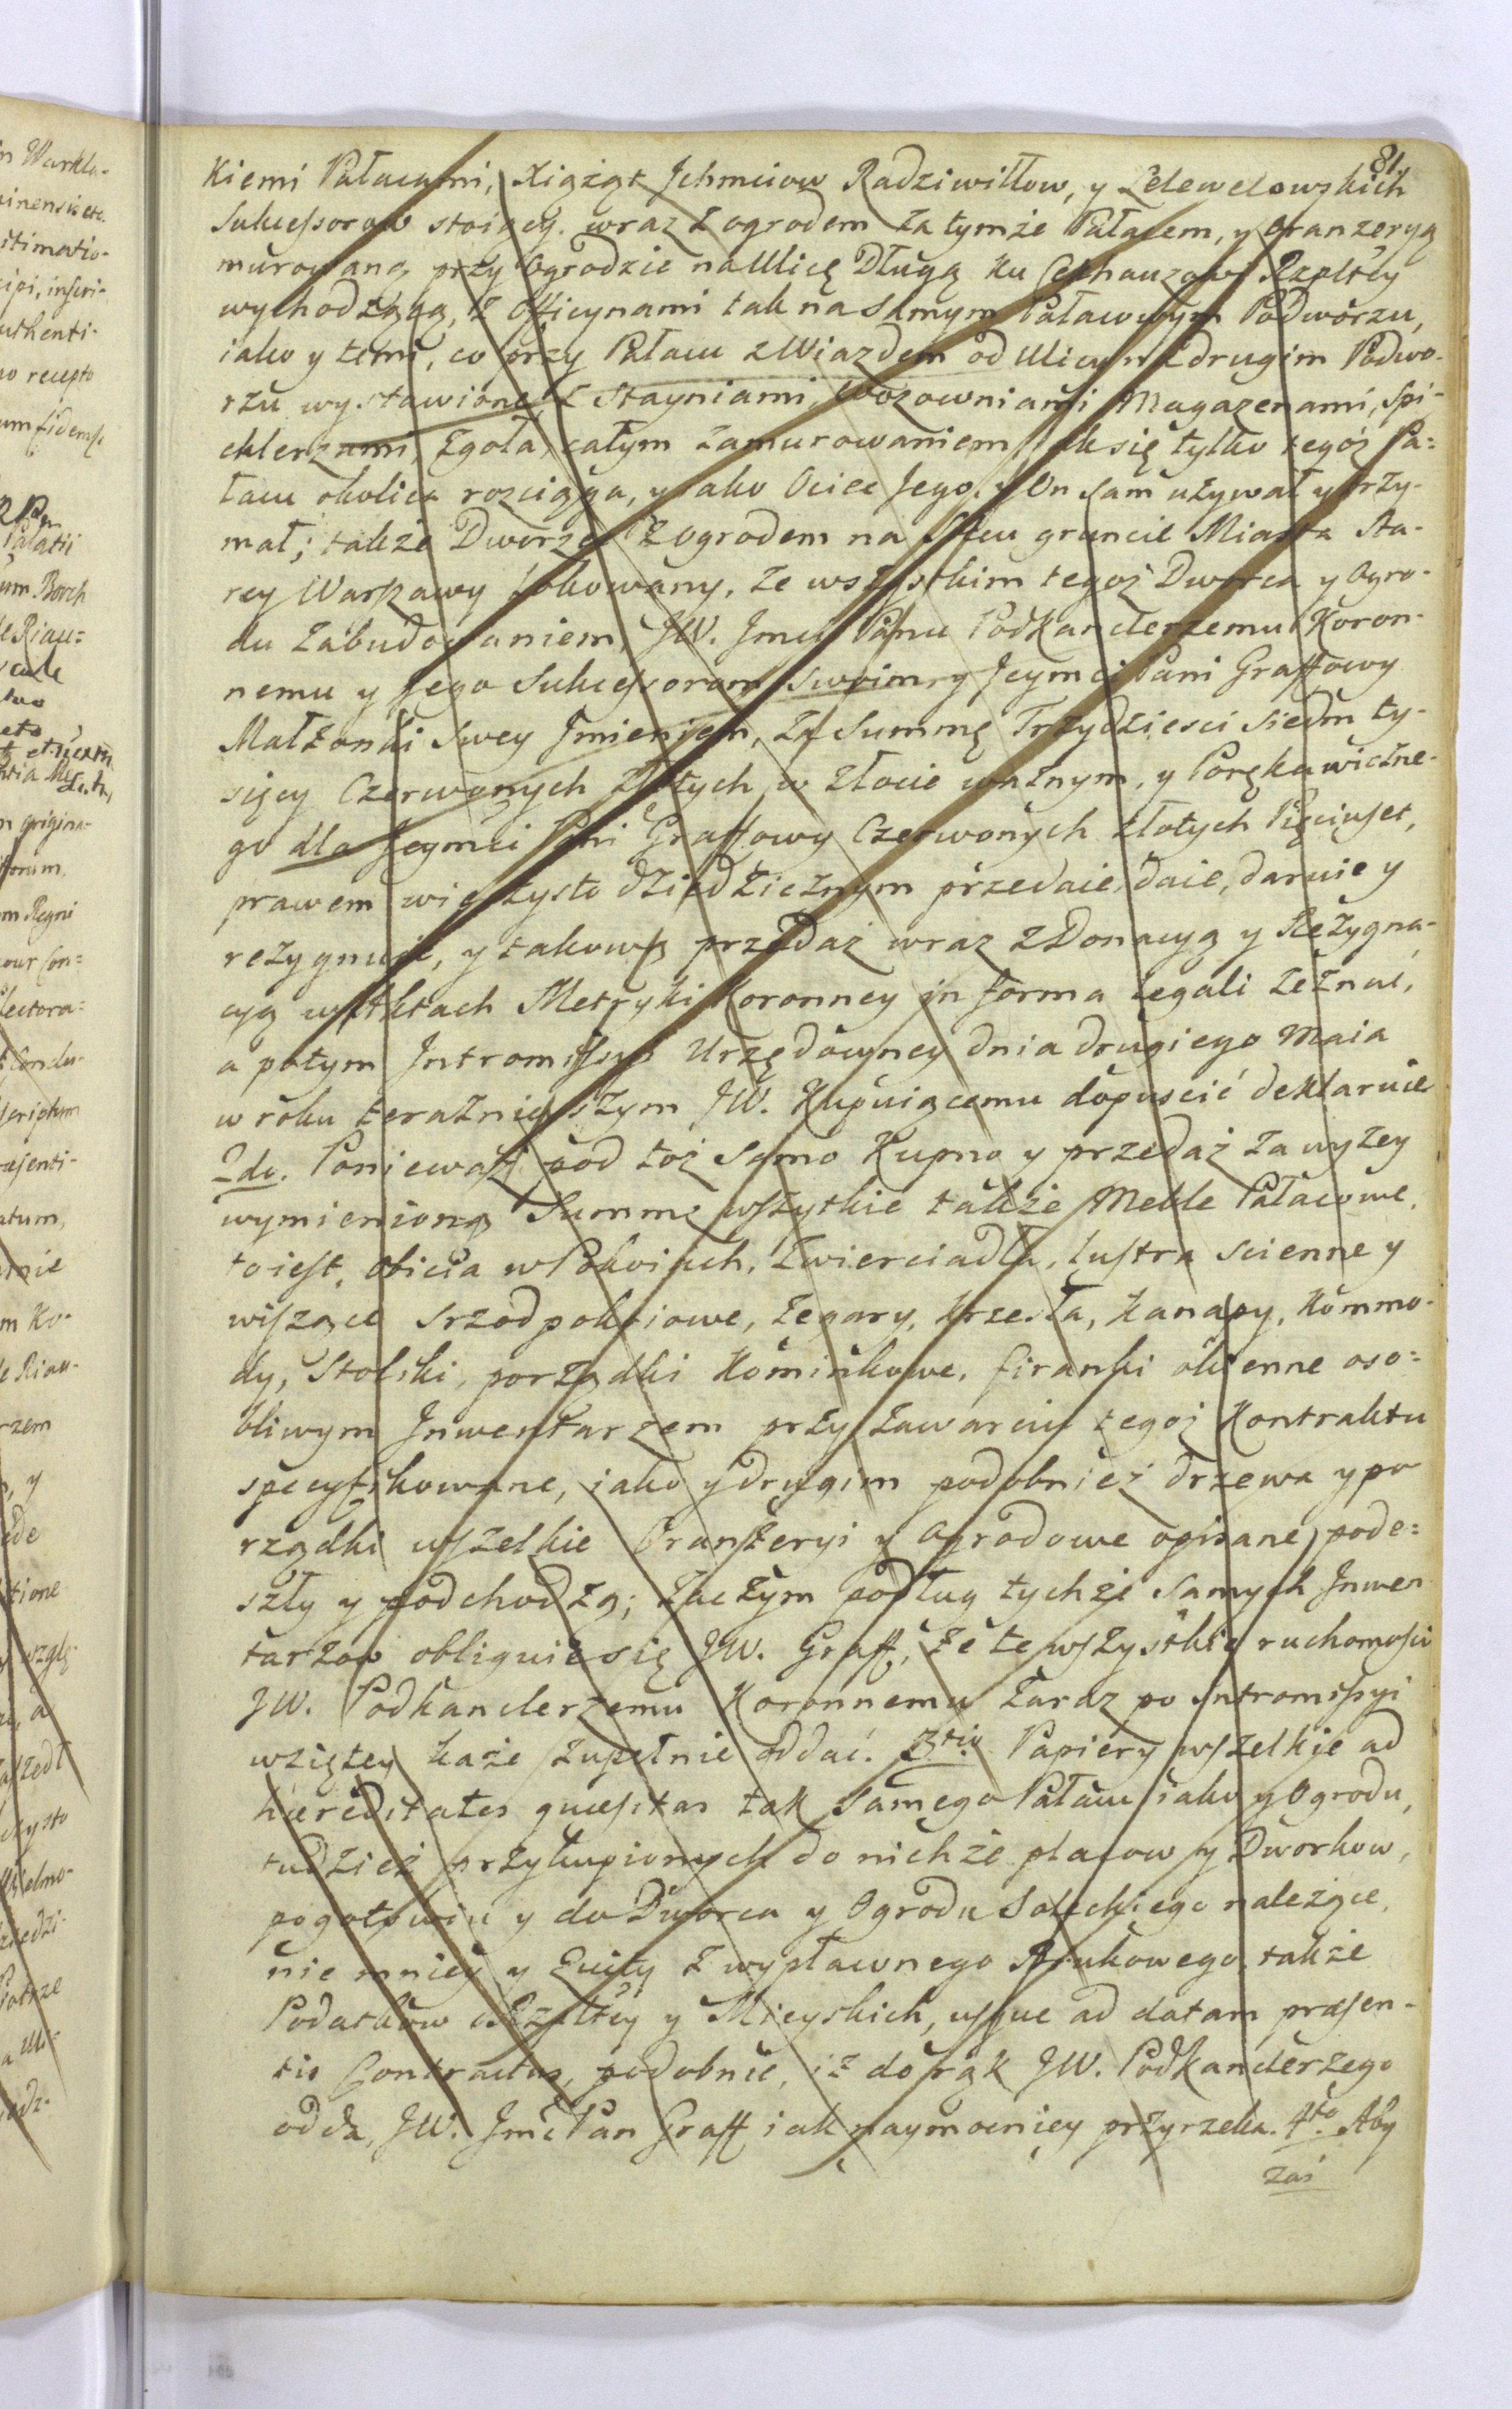 81.
kiemi Pałacami, Xiążąt Jchmciow Radziwiłłow, y Lelewelowskich
Sukceſsorow stoiącÿ. wraz z ogrodem za tymże Pałacem, y oranzeryą
murowaną przy Ogrodzie na Ulicę Długą ku Cekhauzowi Rzpltey
wychodzącą, z Officynami tak na samym Pałacowym Podworzu,
iako y temi, co przy Pałacu z Wiazdem od Ulicy na drugim Podwo-
rzu wystawione, z Stayniami, Wozowniami Magazenami, Spi-
chlerzami, zgoła całym zamurowaniem iak się tylko tegoż Pa=
łacu okolica rozciąga, y iako Ociec Jego, y On sam używał y trzy-
mał; także Dworzec z Ogrodem na Solcu gruncie Miasta Sta-
rey Warſzawy lokowany, ze wszystkim tegoż Dworca y Ogro-
du zabudowaniem, JW. Jmci Panu Podkanclerzemu Koron-
nemu y Jego Sukceſsorom swoim y Jeymci Pani Graffowy
Małżonki swey Jmieniem, za Summę Trzydziesci siedm ty-
sięcy Czerwonych Złotych w złocie ważnym, y Porękawiczne-
go dla Jeymci Pni Graffowy Czerwonych złotych Pięciuſet,
prawem wieczysto dziedzicznym przedaie, daie, daruie y
rezygnuie, y takową przedaż wraz z Donacyą y Rezygna-
cyą w Aktach Metryki Koronney in forma legali zeznać,
a potym Intromiſsyi Urzędowney dnia drugiego Maia
w roku teraznieyszym JW. Kupuiącemu dopuscić deklaruie
2do. Poniewaſz pod toż samo Kupno y przedaż za wyzey
wymienioną Summę wſzytkie także Meble Pałacowe,
toieſt, obicia w Pokoiach, Zwierciadła, luſtra scienne y
wiſzące srzodpokoiowe, zegary, krzesła, kanapy, kommo-
dy, Stoliki, porządki kominkowe, firanki okienne oso=
bliwym Jnwentarzem przy zawarciu tegoż Kontraktu
specyfikowane, iako y drugim podobnież drzewa y po
rządki wſzelkie Oranżeryi y Ogrodowe opisane, pode=
szły y podchodzą; zaczym podług tychże samych Jnwen
tarzow obliguie się JW. Graff, że te wſzystkie ruchomości
JW. Podkanclerzemu Koronnemu zaraz po Intromiſsyi
wziętey każe zupełnie oddać. 3tio Papiery wſzelkie ad
hæreditates quæsitas tak samego Pałacu iako y Ogrodu,
tudzież przykupionych do nichże placow y Dworkow,
pogotowiu y do Dworca y Ogrodu Soleckiego należące,
nie mniey y Kwity z wypławnego Brukowego także
Podatkow Rzpltey y Mieyskich, uſque ad datam præsen-
tis Contractus, podobnie, iż do rąk JW. Podkanclerzego
odda, JW. Jmć Pan Graff iak naymocniey przyrzeka. 4to. Aby
zaś